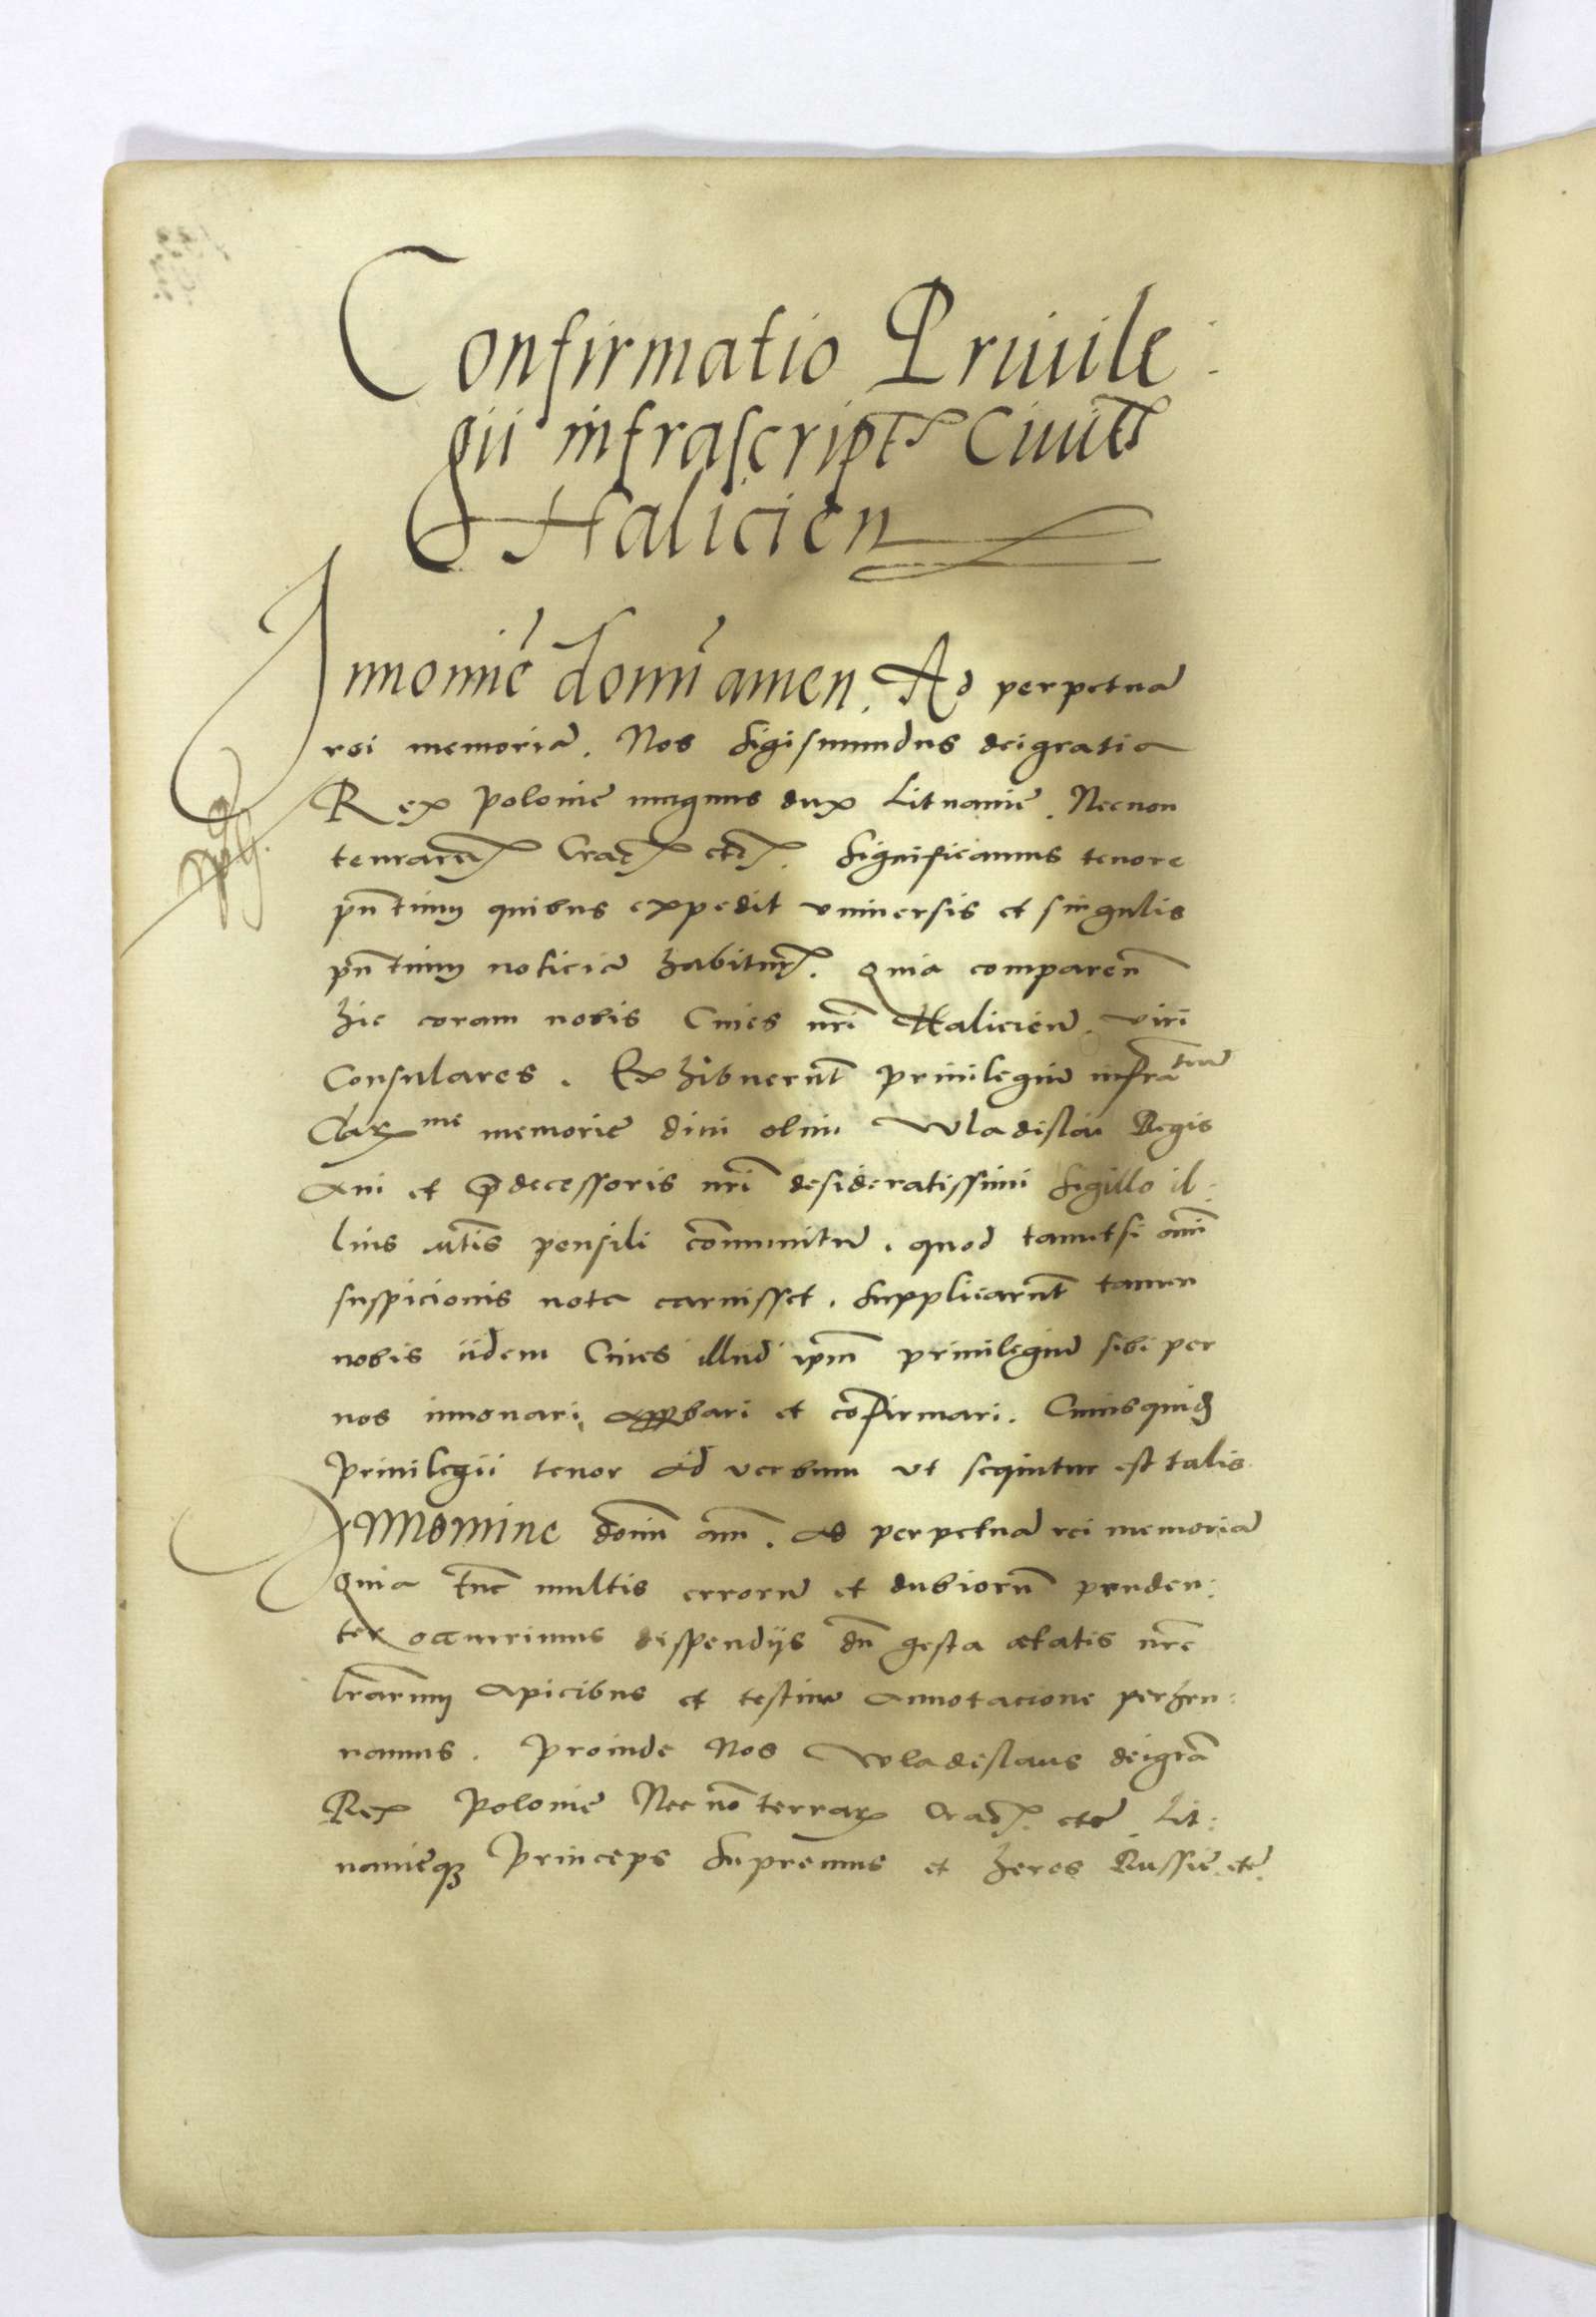 Confirmatio Priuile:
gii infrascript Ciuit
Halicien
Innomie domi amen. Ad perpetua
rei memoria. Nos Sigismundus deigratia
Rex Polonie magnus dux Lituanie. Necnon
terrarum Crac etc. Significamus tenore
pntium quibus expedit vniuersis et singulis
pntium noticia habitur. Quia comparen
hic coram nobis Ciues nri Halicien viri
Consulares. Exhibuerut priuilegiu infra
Clarme memorie diui olim Wladislai Regis
Aui et predecessoris nri desideratissimi Sigillo il:
lius mtis pensili comunitu. quod tametsi omi
suspicionis nota caruisset. Supplicarut tamen
nobis iidem Ciues illud ipm priuilegiu sibi per
nos innouari, approbari et cofirmari. Cuiusquid
priuilegii tenor ad verbum vt sequitur est talis
Innomine domi am. Ad perpetua rei memoria
Quia tuc multis erroru et dubioru pruden:
ter occurrimus dispendijs du gesta etatis nre
lrarum apicibus et testiu annotacione perhen:
namus. Proinde Nos Wladislaus deigra
Rex Polonie Nec no terrar Crac. etc Lit:
nanieq Princeps Supremus et heres Russie etc.